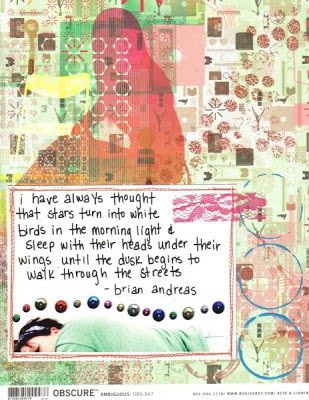 i have always thought
that stars turn into white
birds in the morning light &
sleep with their heads under their
wings until the dusk begins to
walk through the streets
- brian andreas
OBSCURE™ AMBIGUOUS/ OBS-997